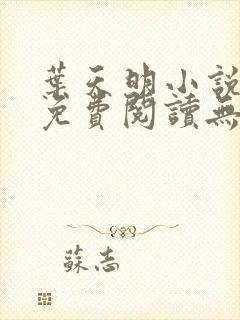 葉天明小說
免費閱讀無
蘇志